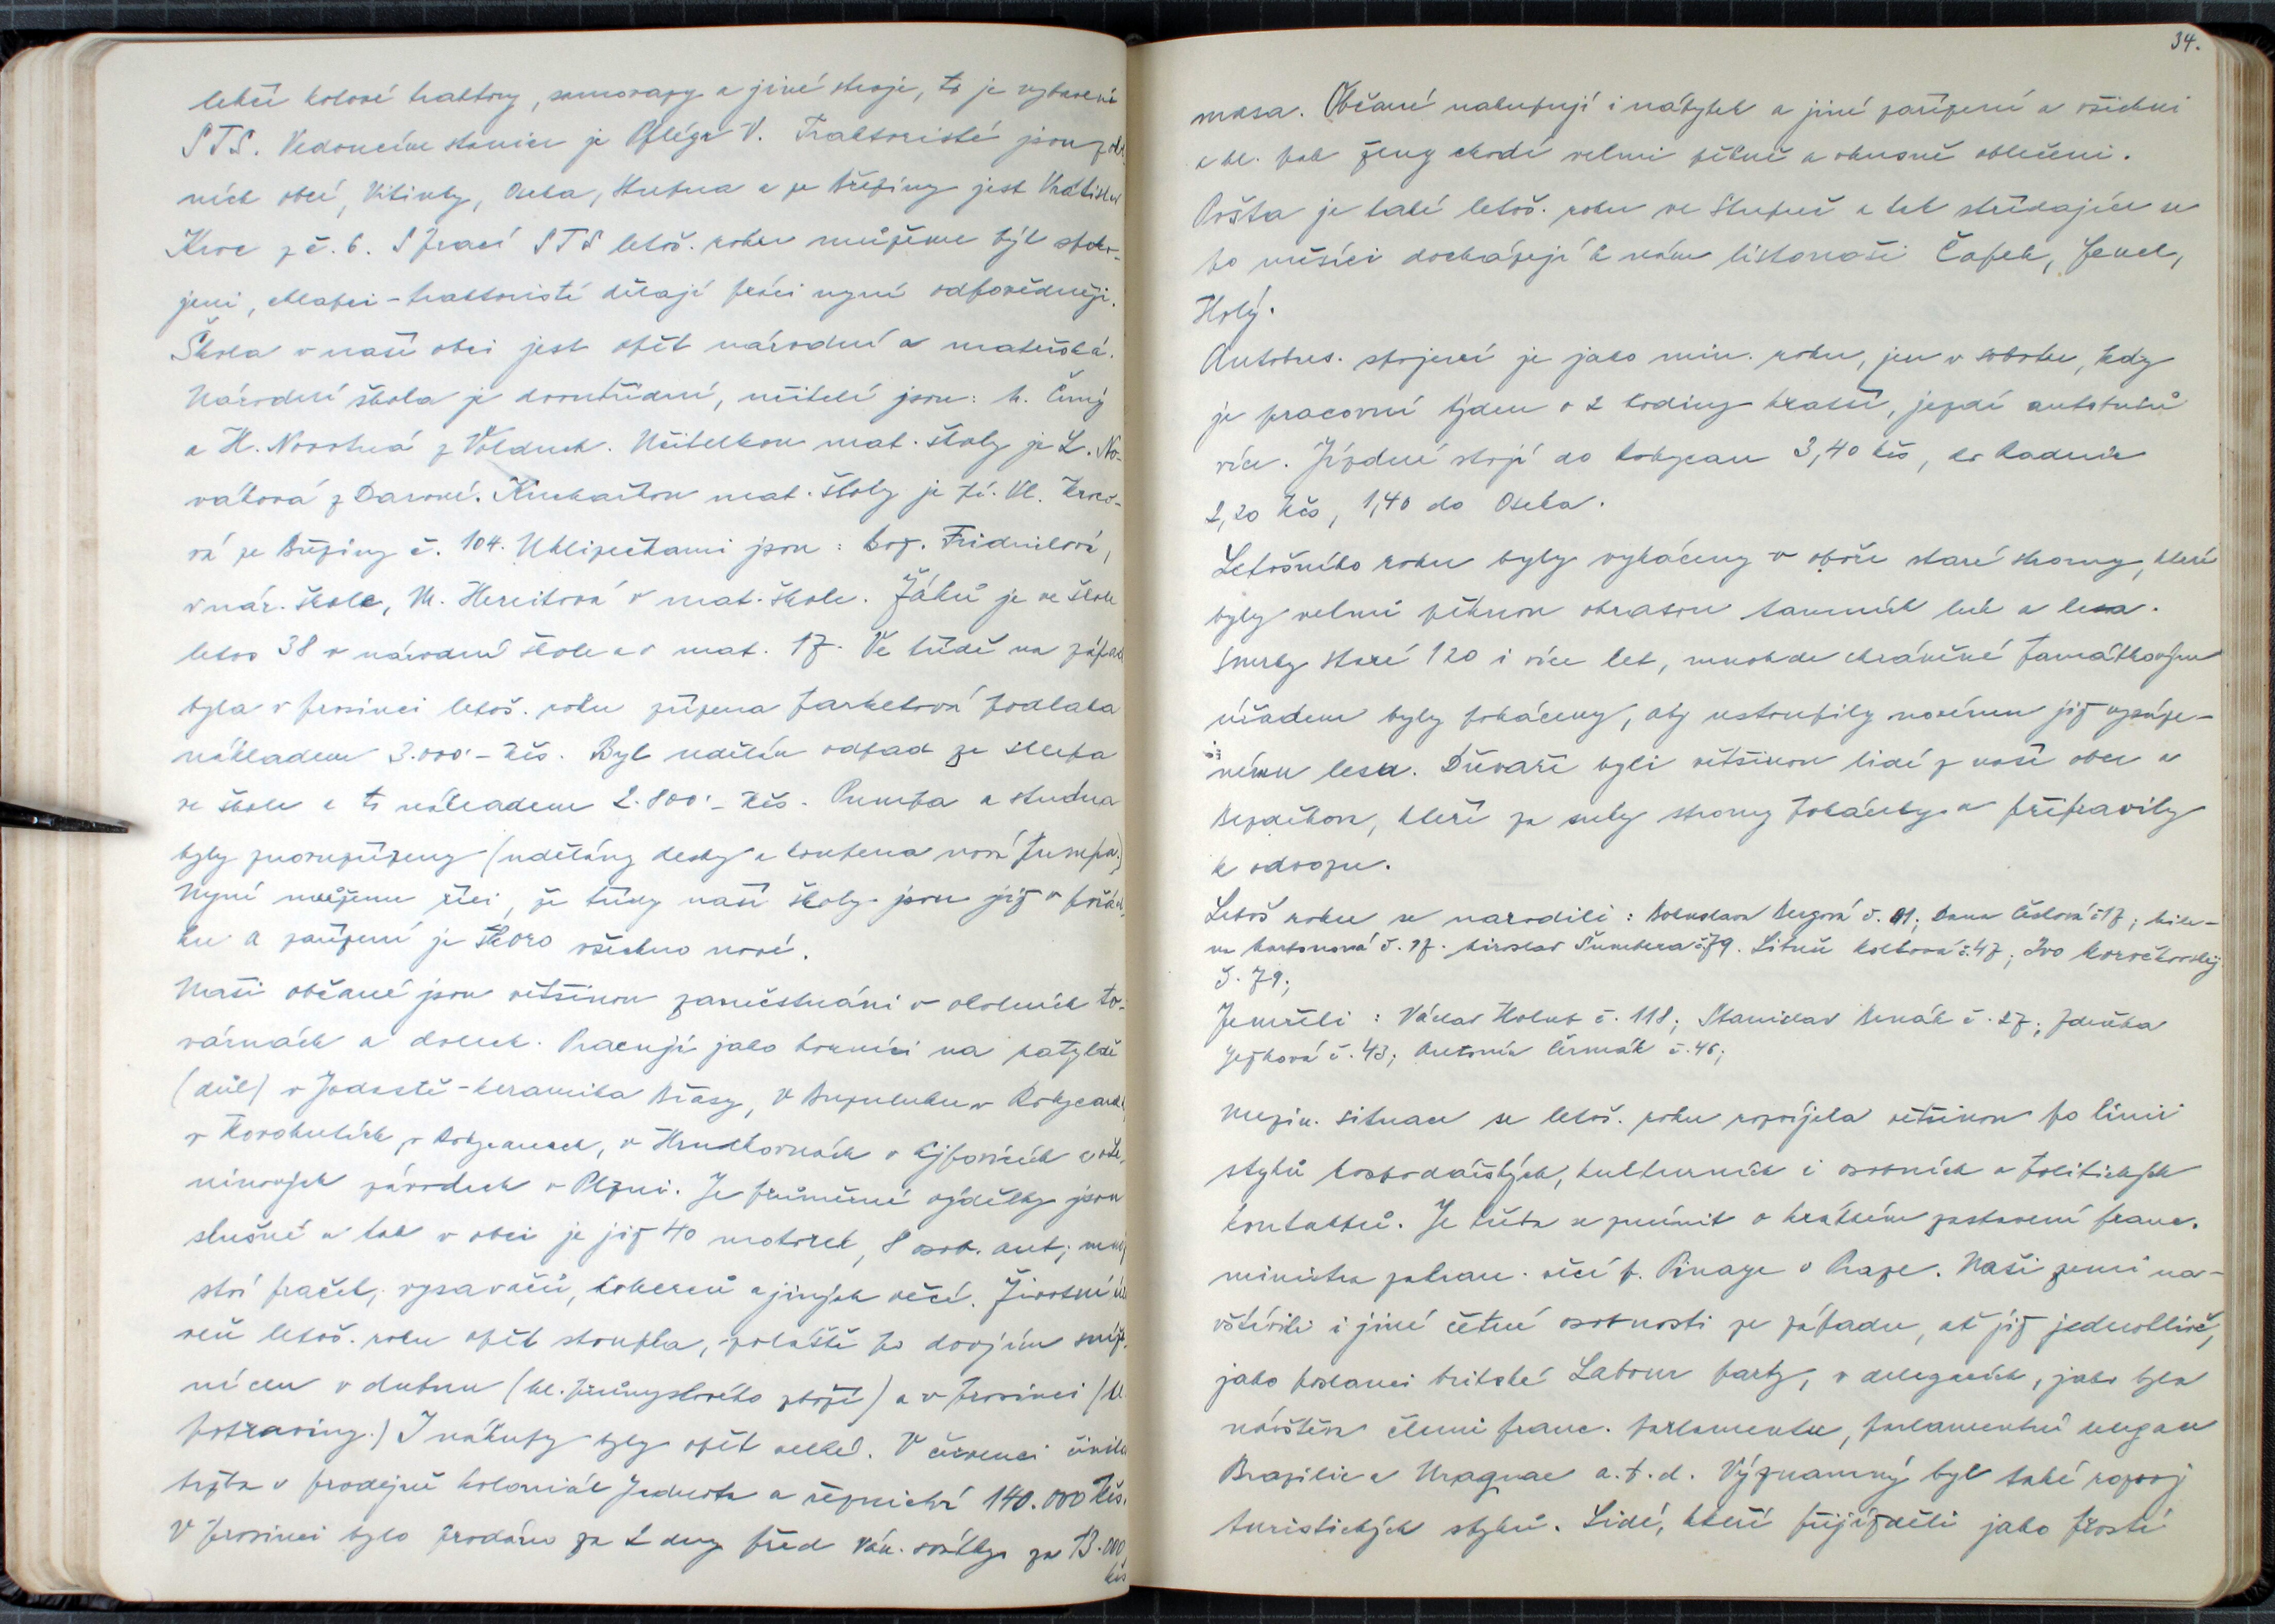 lehčí kolové traktory, samovazy a jiné stroje, to je vybavení
STS. Vedoucím stanice je Pflégr V. Traktoristé jsou z
ních obcí, Vitinky, Oseka, Stupna a ze Březiny jest Vratislav
Kroc z č. 6. S prací STS letoš. roku můžeme být spoko-
jeni, chlapci-traktoristé dělají práci nyní odpovědněji.
Škola v naší obci jest opět národní a mateřská.
Národní škola je dvoutřídní, učitelé jsou: M. Černý
a H. Novotná z Volduch. Učitelkou mat. školy je L. No-
váková z Darové. Kuchařkou mat. školy je Vl. Kroco-
vá ze Březiny č. 104. Uklízečkami jsou: Fridrichová,
v nár. škole, M. Hereitová v mat. škole. Žáků je ve škole
letos 38 v národní škole a v mat. 17. Ve třídě na západ
byla v prosinci letoš. roku zřízena parketová podlaha
nákladem 3.000.- Kčs. Byl udělán odpad ze sklepa
ve škole a to nákladem 2.800.- Kčs. Pumpa a studna
byly znovuzřízeny (udělány desky a koupena nová pumpa.)
Nyní můžeme říci, že třídy naší školy jsou již v pořád-
ku a zařízení je skoro všechno nové.
Naši občané jsou většinou zaměstnáni v okolních to-
várnách a dolech. Pracují jako horníci na
(důl) v Jodastě-keramika Břasy, v v Rokycanech,
v Kovohutích v Rokycanech, v Hrudkovnách v Ejpovicích a v Le-
ninových závodech v Plzni. Je průměrné výdělky jsou
slušné a tak v obci je již 40 motorek, 8 osob. aut, množ
ství praček, vysavačů, koberců a jiných věcí. Životní úro
veň letoš. roku opět stoupla, zvláště po dvojím sníž.
ní cen v dubnu (hl. průmyslového zboží) a v prosinci (hl.
potraviny.) I nákupy byly opět velké. V červenci činila
tržba v prodejně koloniál Jednota a řeznictví 140.000 Kčs.
V prosinci bylo prodáno za 2 dny před ván. svátky za 13.000
Kčs
34.
masa. Občané nakupují i nábytek a jiné zařízení a všichni
a hl. pak ženy chodí velmi pěkně a vkusně oblečeni.
Pošta je také letoš. roku ve Stupně a tak střídajíce se
po měsíci docházejí k nám listonoši Čapek, Jenel,
Holý.
Autobus. spojení je jako min. roku, jen v sobotu, kdy
je pracovní týden o 2 hodiny kratší, jezdí autobusů
více. Jízdné stojí do Rokycan 3,40 Kčs, do Radnic
2,20 Kčs, 1,40 do Oseka.
Letošního roku byly vykáceny v oboře staré stromy, které
byly velmi pěknou okrasou tamních luk a lesa.
Smrky staré 120 i více let, mnohde chráněné památkovým
úřadem byly pokáceny, aby ustoupily novému již vysáze-
nému lesu. Dřevaři byli většinou lidé z naší obce a
Bezděkova, kteří za suby stromy pokáceli a připravily
k odvozu.
Letoš roku se narodili: Bohuslava Bergová č. 91; Dana Češlová č 17; Mile-
na č. 17. Miroslav Šumbera č 79. Libuše Koltová č. 47; Ivo
č. 79;
Zemřeli: Václav Holub č. 118; Stanislav Benák č. 27; Zdeňka
Jezková č. 43; Antonín Čermák č. 46;
Mezin. situace se letoš. roku rozvíjela většinou po linii
styků hospodářských, kulturních i osobních a politických
kontaktů. Je třeba se zmínit o krátkém zastavení franc.
ministra zahran. věcí p. Pinaye v Praze. Naši zemi na-
vštívili i jiné četné osobnosti ze západu, ať již jednotlivě,
jako poslanci britské Labour party, v delegacích, jako byla
návštěva členů franc. parlamentu, parlamentní delegace
Brazilie a Uraguae a.t.d. Významný byl také rozvoj
turistických styků. Lidé, kteří přijížděli jako prostí